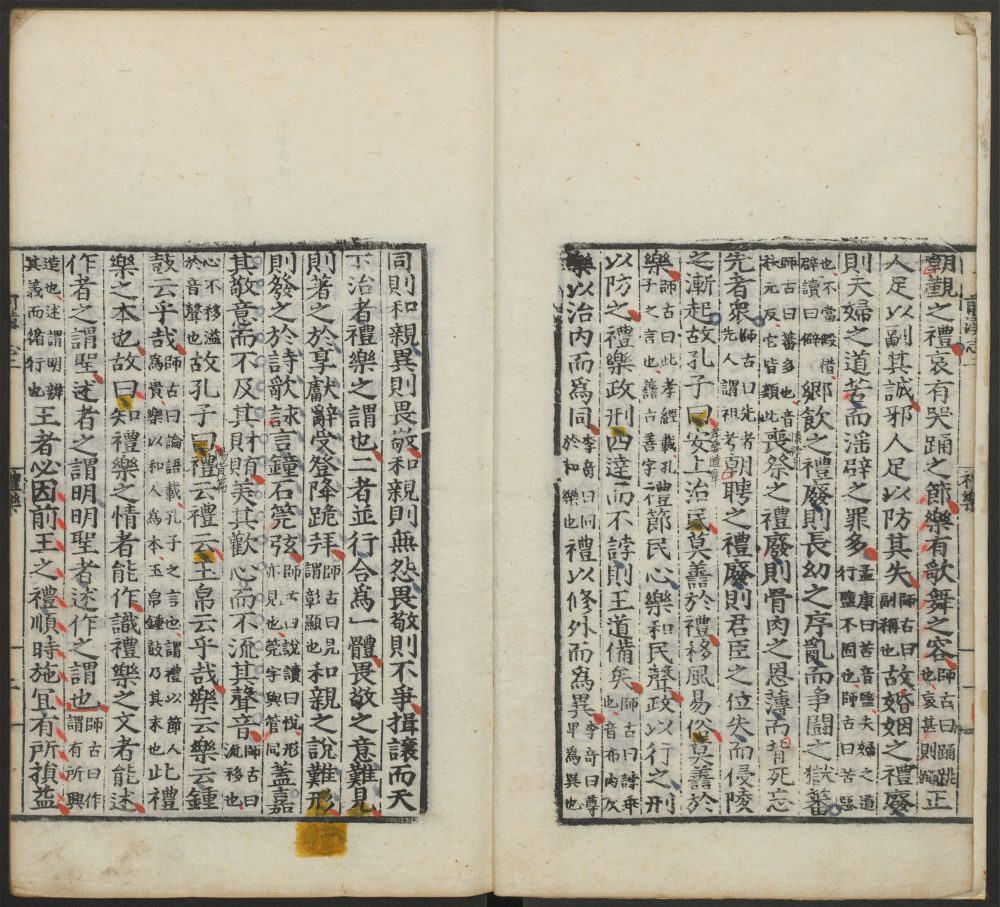 朝覲之禮哀有哭踊之節樂有歌舞之容師古曰踊跳也哀甚則踊正
人足以副其誠邪人足以防其失師古曰副稱也故婚姻之禮廢
則夫婦之道苦而淫辟之罪多孟康曰苦音盬夫婦之道行盬不固也師古曰苦惡
也不當假借辟讀曰僻鄉飲之禮廢則長幼之序亂而爭鬭之獄蕃
師古曰蕃多也音扶元反它皆類此喪祭之禮廢則骨肉之恩薄而背死忘
先者衆師古曰先者先人謂祖考朝聘之禮廢則君臣之位失而侵陵
之漸起故孔子曰安上治民莫善於禮移風易俗莫善於
樂師古曰此孝經載孔子之言也譱古善字禮節民心樂和民聲政以行之刑
以防之禮樂政刑四達而不誖則王道備矣師古曰誖乖也音布內反
樂以治內而爲同李奇曰同於和樂也禮以修外而爲異李奇曰尊卑爲異也
前漢志二
禮樂
同則和親異則畏敬和親則無怨畏敬則不爭揖讓而天
下治者禮樂之謂也二者並行合爲一體畏敬之意難見
則著之於享獻辭受登降跪拜師古曰見謂彰顯也和親之說難形
則發之於詩歌詠言鐘石筦弦師古曰說讀曰悅形亦見也筦字與管同蓋嘉
其敬意而不及其財賄美其歡心而不流其聲音師古曰流移也
心不移溢於音聲也故孔子曰禮云禮云玉帛云乎哉樂云樂云鍾
鼓云乎哉師古曰論語載孔子之言也謂禮以節人爲貴樂以和人爲本玉帛鍾鼓乃其末也此禮
樂之本也故曰知禮樂之情者能作識禮樂之文者能述
作者之謂聖述者之謂明明聖者述作之謂也師古曰作謂有所興
造也述謂明辨其義而循行也王者必因前王之禮順時施宜有所損益
禮樂